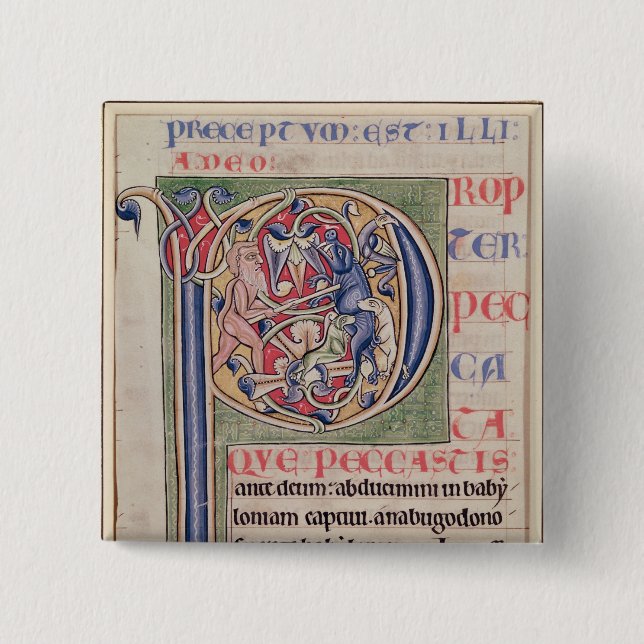 PRECEPTVM : EST : ILLI :
A DEO :
PROP
TER
PEC
CA
TA
QVE PECCASTIS
ante deum : abducimini in baby
loniam captiui . a nabugodono